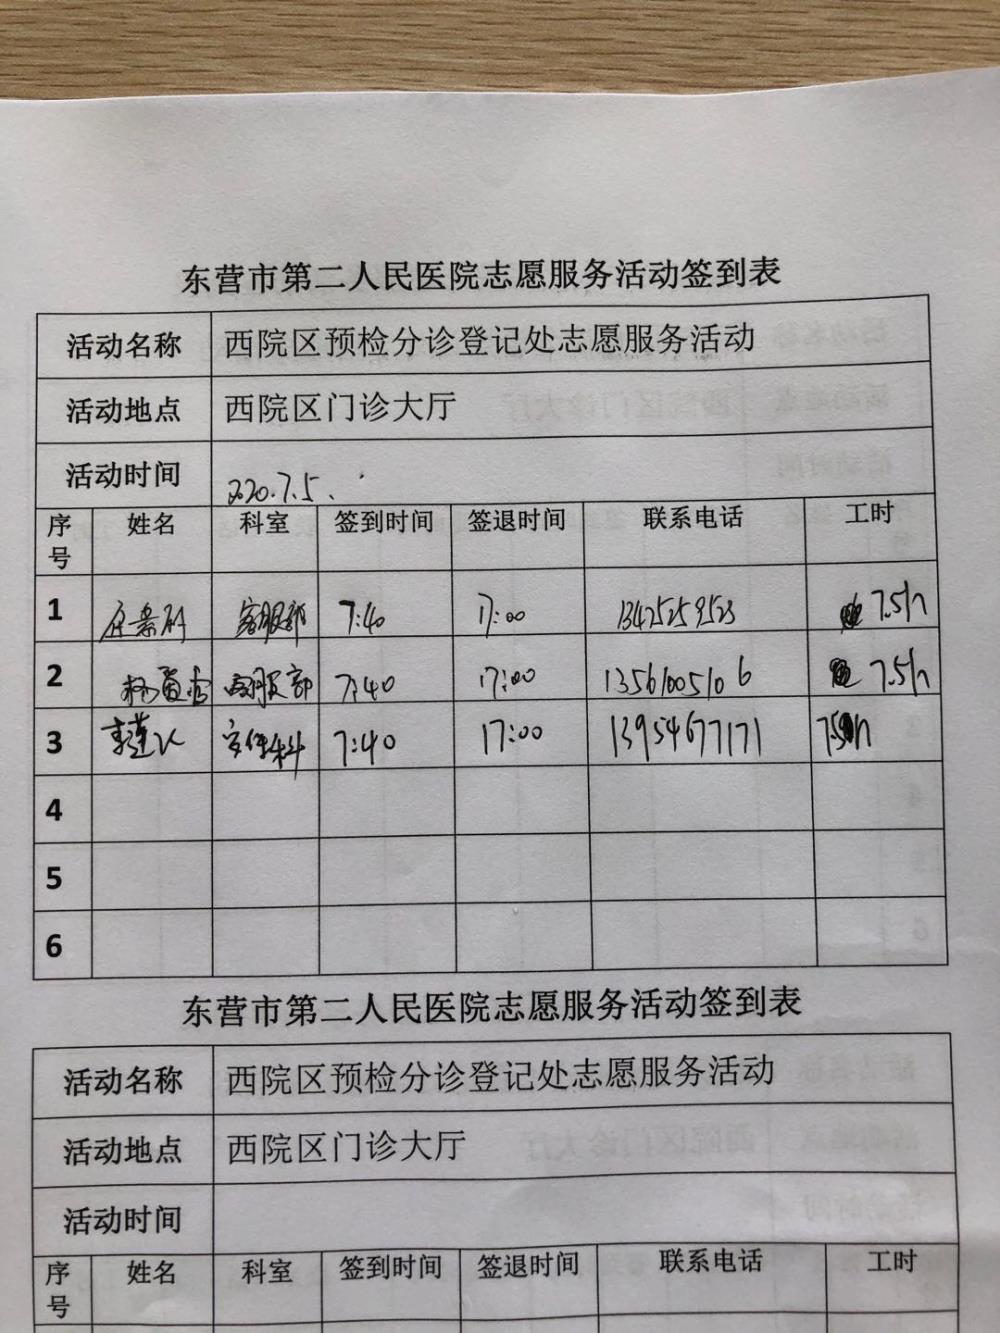 东营市第二人民医院志愿服务活动签到表
活动名称 西院区预检分诊登记处志愿服务活动
活动地点 西院区门诊大厅
活动时间 2020.7.5.
序号 姓名 科室 签到时间 签退时间 联系电话 工时
1 客服部 7:40 17:00 13425259523 7.5h
2 客服部 7:40 17:00 13561005106 7.5h
3 7:40 17:00 13954677171 7.5h
4
5
6
东营市第二人民医院志愿服务活动签到表
活动名称 西院区预检分诊登记处志愿服务活动
活动地点 西院区门诊大厅
活动时间
序号 姓名 科室 签到时间 签退时间 联系电话 工时